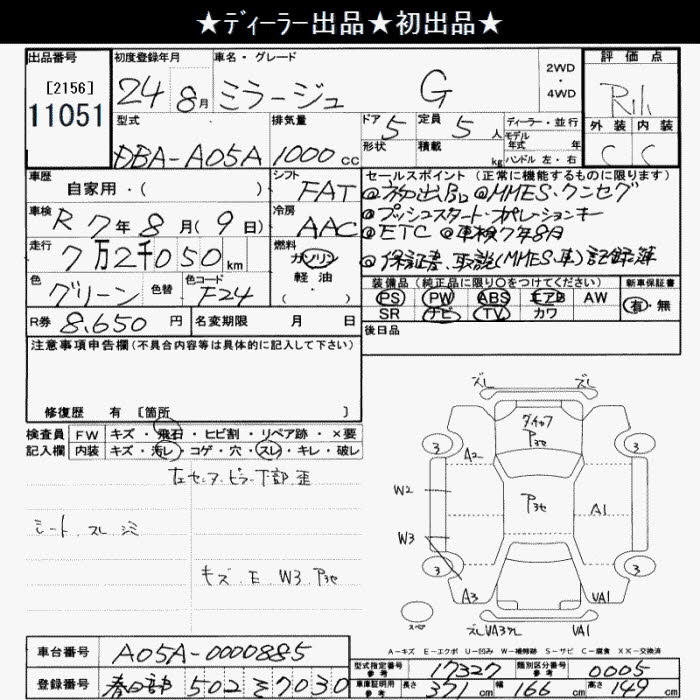 ★ディーラー出品★初出品★
出品番号
[2156]
11051
初度登録年月
24 8月
車名・グレード
ミラージュ G
2WD
・
4WD
評価点
外装 内装
C C
型式
DBA-A05A
排気量
1000 cc
ドア 5
定員 5 人
形状
積載 kg
ディーラー・並行
モデル年式 年
ハンドル 左・右
車歴
自家用・( )
シフト
FAT
車検
R 7年 8月( 9日)
冷房
AAC
走行
7万2千050 km
燃料
ガソリン
軽油
( )
色
グリーン
色替
色コード
F24
R券 8,650 円
名変期限 月 日
セールスポイント (正常に機能するものに限ります)
@初出品 @MMES・ワンセグ
@プッシュスタート・オペレーションキー
@ETC @車検7年8月
@保証書、取説(MMES・車)記録簿
装備品(純正品に限り○をつけてください)
PS PW ABS エアB AW
SR ナビ TV カワ
新車保証書
有・無
後日品
注意事項申告欄(不具合内容等は具体的に記入して下さい)
修復歴 有 [箇所 ]
検査員 FW キズ・飛石・ヒビ割・リペア跡・×要
記入欄 内装 キズ・汚レ・コゲ・穴・スレ・キレ・破レ
左センターピラー下部歪
シート スレ シミ
キズ E W3 Pセ
スレ スレ
ダイヤフ
Pセ
3 3
A2
W2
Pセ
A1
W3
3 3
A3 UA1
スペア
スレUA3ワレ UA1
A-キズ E-エクボ U-凹み W-補修跡 S-サビ C-腐食 XX-交換済
車台番号 A05A-0000885
登録番号 春日部 502 そ 7030
型式指定番号 参考 17327
類別区分番号 参考 0005
車庫証明用 参考 長さ 371 cm 幅 166 cm 高さ 149 cm